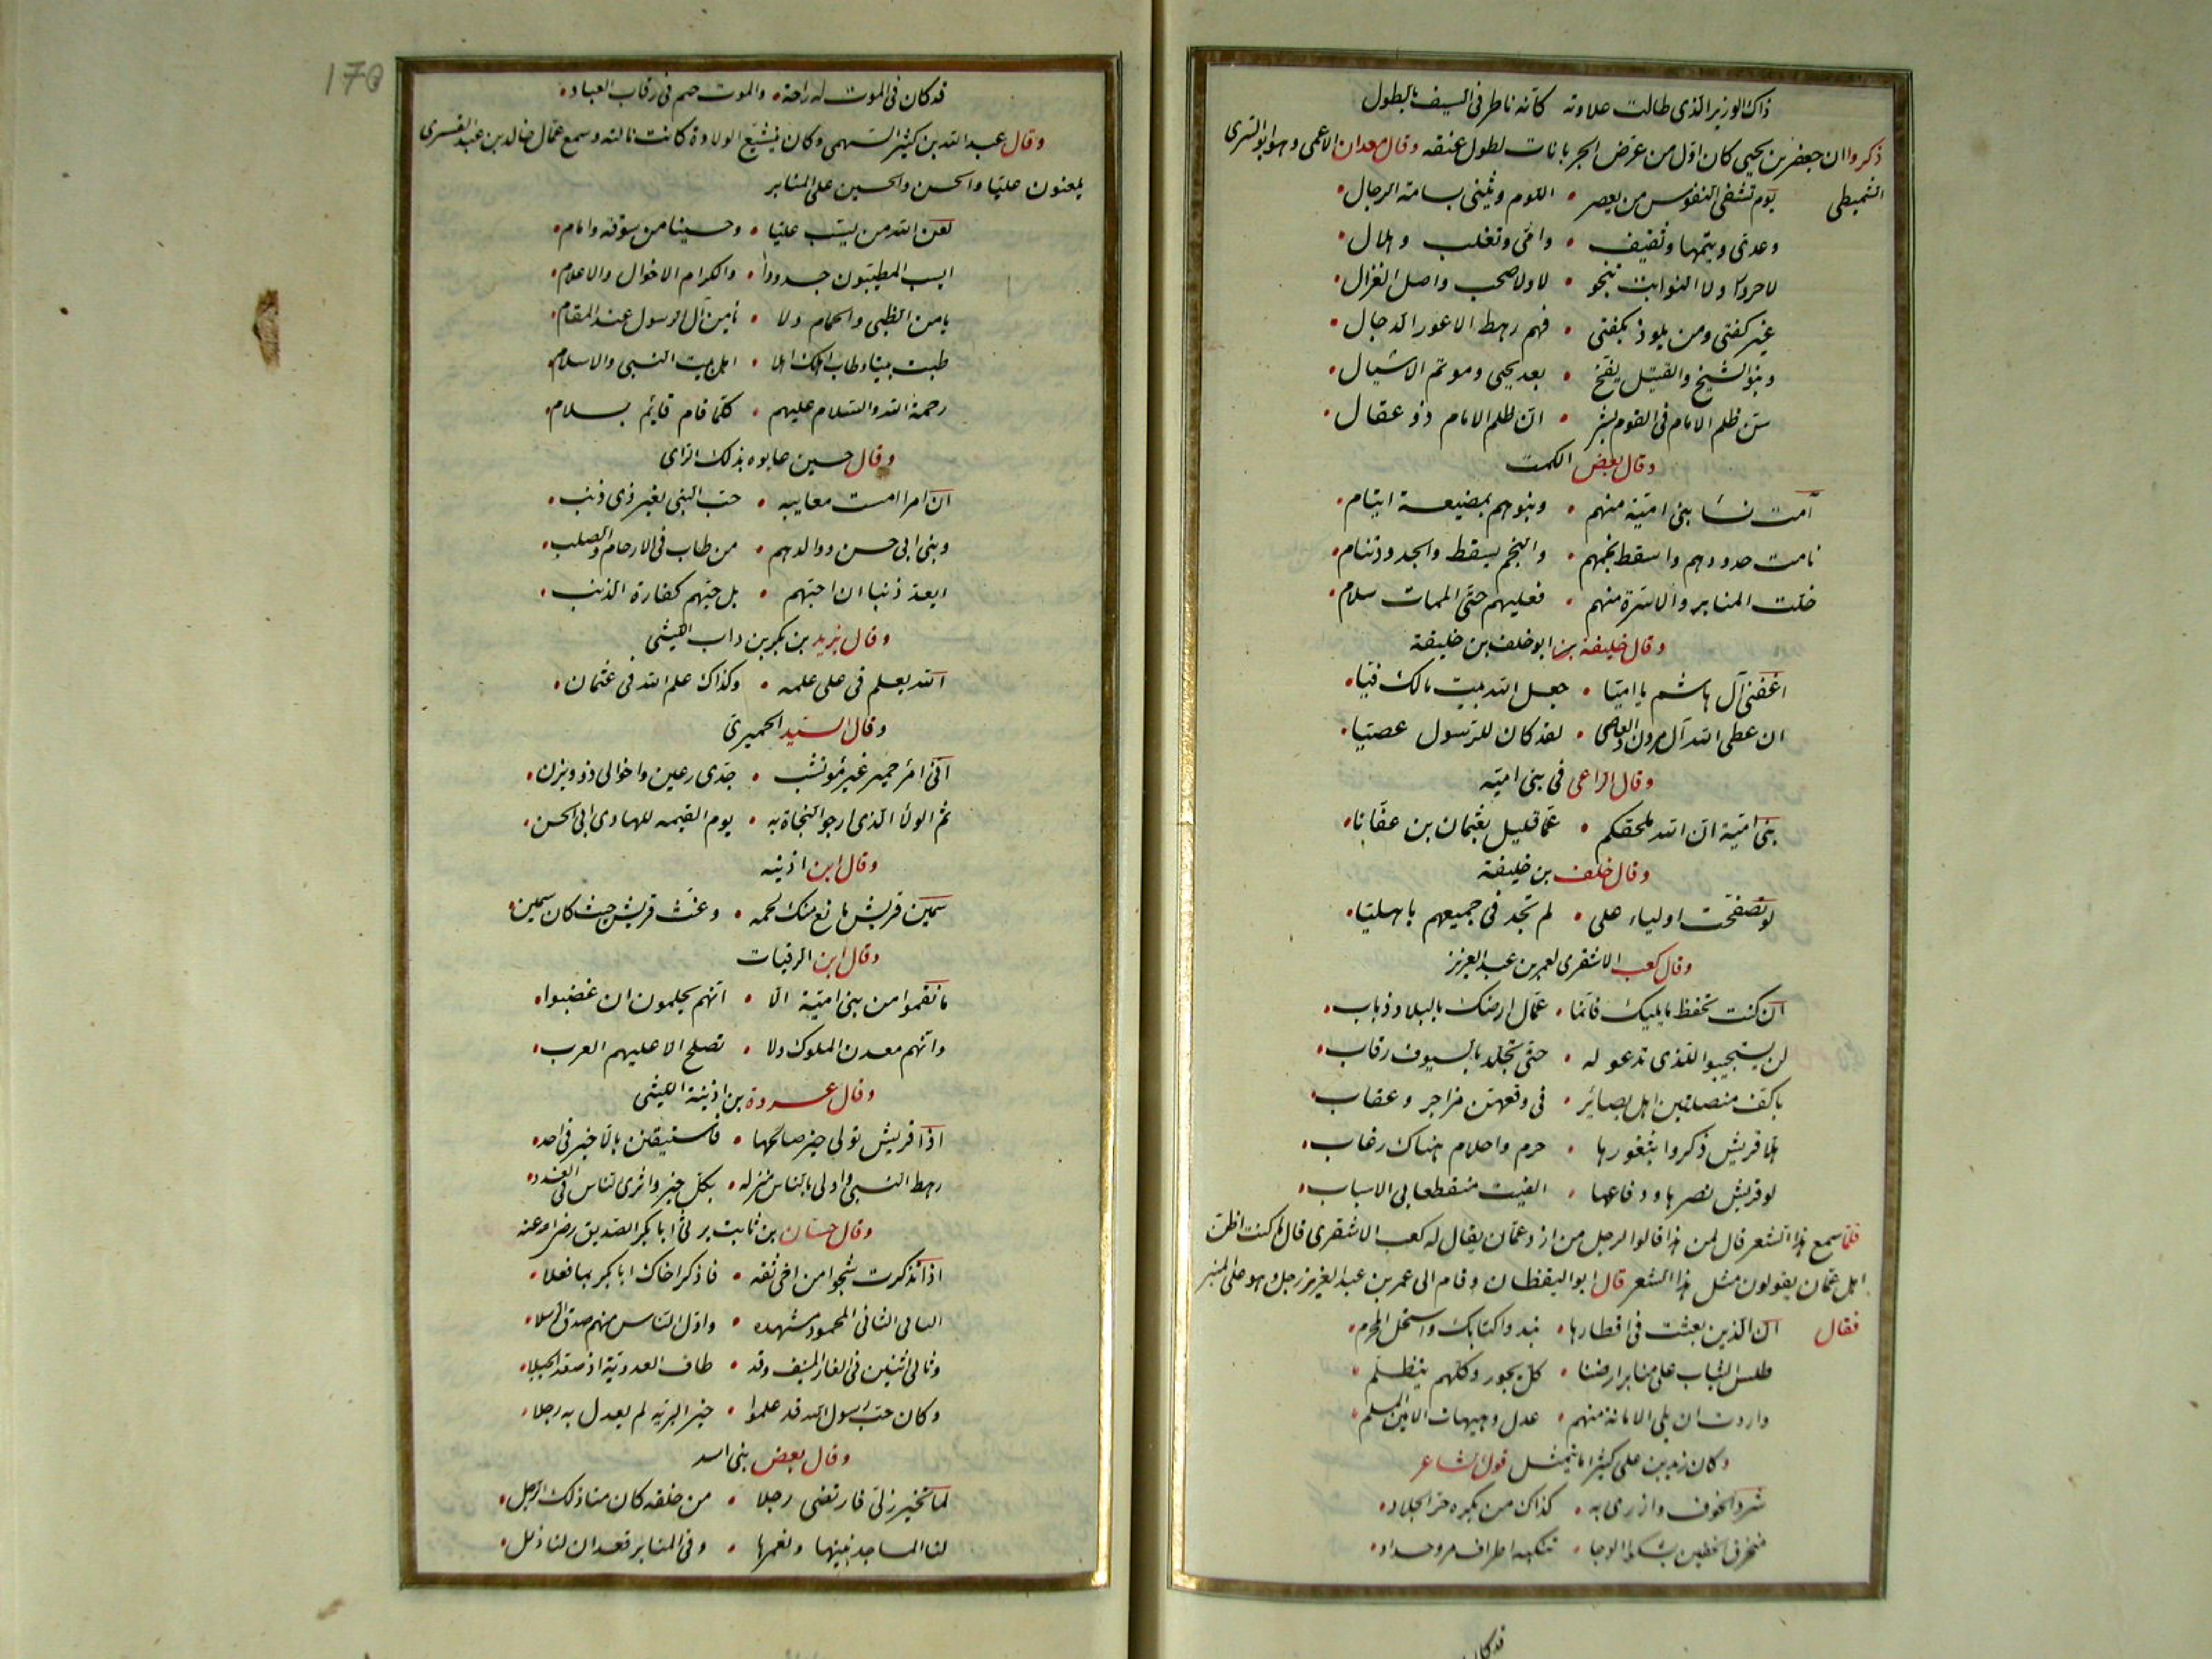 ذاك الوزير الذى طالت علاوته كانه ناظر فى السيف بالطول
ذكروا ان جعفر بن يحيى كان اول من عرض الجربانات لطول عنقه وقال معدان الاعمى وهو ابو السرى
الشميطى يوم تشفى النفوس من يعصر • اللوم ويثنى بسامة الرحال •
وعدى وتيمها وثقيف • وامى وتغلب وهلال •
لا حرورا ولا النوابت تنجو • لا ولا صحب واصل الغزال •
غير كفتى ومن يلوذ بكفتى • فهم رهط الاعور الدجال •
وبنو الشيخ والقتيل بفخ • بعد يحيى وموتم الاشبال •
سن ظلم الامام فى القوم بشر • ان ظلم الامام ذو عقال •
وقال بعض الكمت
آمت نسا بنى امية منهم • وبنوهم بمضيعة ايتام •
نامت جدودهم واسقط نجمهم • والنجم يسقط والجدود تنام •
خلت المنابر والاسرة منهم • فعليهم حتى الممات سلام •
وقال خليفة بن ابو خلف بن خليفة
اعقبى آل هاشم يا اميا • جعل الله بيت مالك فيا •
ان عصى الله آل مرون والعاصى • لقد كان للرسول عصيا •
وقال الراعى فى بنى امية
بنى امية ان الله ملحقكم • عما قليل بعثمان بن عفانا •
وقال خلف بن خليفة
لو تصفحت اولياء على • لم تجد فى جميعهم باهليا •
وقال كعب الاشقرى لعمر بن عبد العزيز
ان كنت تحفظ ما يليك فانما • عمال ارضك بالبلاد ذياب •
لن يستجيبوا للذى تدعو له • حتى تجلد بالسيوف رقاب •
باكف منصلتين اهل بصائر • فى وقعهن مزاجر وعقاب •
هلا قريش ذكروا بثغورها • حزم واحلام هناك رغاب •
لو قريش نصرها ودفاعها • الفيت منقطعا بى الاسباب •
فلما سمع هذا الشعر قال لمن هذا قالوا لرجل من ازد عمان يقال له كعب الاشقرى قال ما كنت اظن
اهل عمان يقولون مثل هذا الشعر قال ابو اليقظان وقام الى عمر بن عبد العزيز رجل وهو على المنبر
فقال ان الذين بعثت فى اقطارها • نبذوا كتابك واستحل المحرم •
طلس الثياب على منابر ارضنا • كل يجور وكلهم يتظلم •
واردت ان يلى الامانة منهم • عدل وهيهات الامين المسلم •
وكان زيد بن على كثيرا ما يتمثل قول الشاعر
شرده الخوف وازرى به • كذاك من يكره حر الجلاد •
منخرق الخفين يشكوا الوجا • تنكبه اطراف مرو حداد •
قد كان
170
قد كان فى الموت له راحة • والموت حتم فى رقاب العباد •
وقال عبد الله بن كثير السهمى وكان يتشيع لولادة كانت نالته وسمع عمال خالد بن عبد الله القسرى
يلعنون عليا والحسن والحسين على المنابر
لعن الله من يسب عليا • وحسينا من سوقة وامام •
ايسب المطيبون جدودا • والكرام الاخوال والاعلام •
يامن الظبى والحمام ولا • يامن آل الرسول عند المقام •
طبت بيتا وطاب اهلك اهلا • اهل بيت النبى والاسلام •
رحمة الله والسلام عليهم • كلما قام قايم بسلام •
وقال حسين عابوه بذلك الراى
ان امرا امست معايبه • حب النبى لغير ذى ذنب •
وبنى ابى حسن ووالدهم • من طاب فى الارحام والصلب •
ايعد ذنبا ان احبهم • بل حبهم كفارة الذنب •
وقال يزيد بن بكر بن داب الليثى
الله يعلم فى على علمه • وكذاك علم الله فى عثمان •
وقال السيد الحميرى
انى امرء حميرى غير مؤتشب • جدى رعين واخوالى ذوو يزن •
ثم الولا الذى ارجو النجاة به • يوم القيمه للهادى ابى الحسن •
وقال ابن اذينه
سمين قريش مانع منك لحمه • وغث قريش حيث كان سمين •
وقال ابن الرقيات
ما نقموا من بنى امية الا • انهم يحلمون ان غضبوا •
وانهم معدن الملوك ولا • تصلح الا عليهم العرب •
وقال عروة بن اذينة الليثى
اذا قريش تولى خير صالحها • فاستيقنن بان لا خير فى احد •
رهط النبى واولى الناس منزله • بكل خير واثرى الناس فى العدد •
وقال حسان بن ثابت يرثى ابا بكر الصديق رضى الله عنه
اذا تذكرت شجوا من اخى ثقه • فاذكر اخاك ابا بكر بما فعلا •
التالى الثانى المحمود مشهده • واول الناس منهم صدق الرسلا •
وثانى اثنين فى الغار المنيف وقد • طاف العدو به اذ صعد الجبلا •
وكان حب رسول الله قد علموا • خير البريه لم يعدل به رجلا •
وقال بعض بنى اسد
لما تخير ربى فارتضى رجلا • من خلقه كان منا ذلك الرجل •
لنا المساجد نبنيها ونعمرها • وفى المنابر قعدان لنا ذلل •